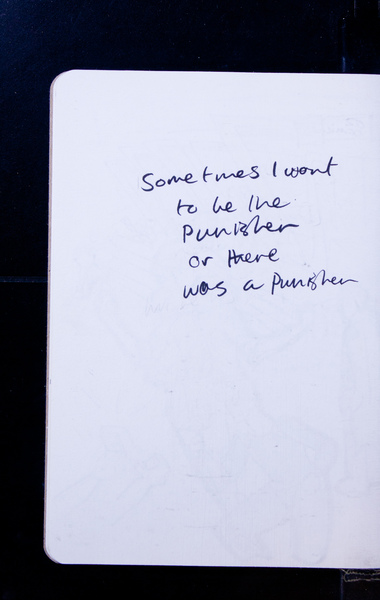 Sometimes I want
to be the
Punisher
or there
was a Punisher